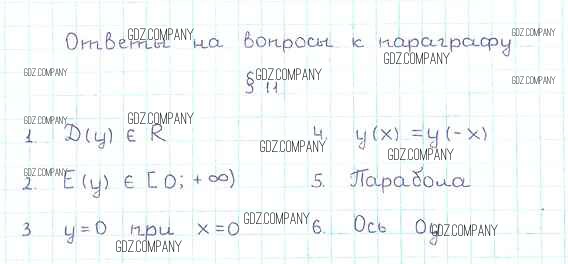 Ответы на вопросы к параграфу
§ 11
1. D(y) ∈ R
2. E(y) ∈ [0; +∞)
3 y=0 при x=0
4. y(x) = y(-x)
5. Парабола
6. Ось Oy
GDZ.COMPANY
GDZ.COMPANY
GDZ.COMPANY
GDZ.COMPANY
GDZ.COMPANY
GDZ.COMPANY
GDZ.COMPANY
GDZ.COMPANY
GDZ.COMPANY
GDZ.COMPANY
GDZ.COMPANY
GDZ.COMPANY
GDZ.COMPANY
GDZ.COMPANY